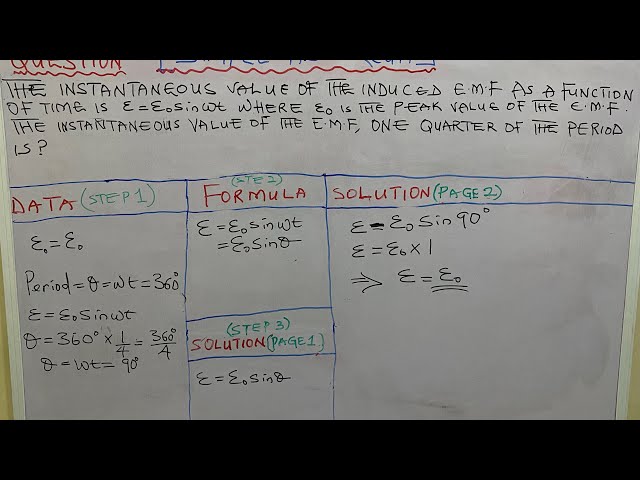 QUESTION
THE INSTANTANEOUS VALUE OF THE INDUCED E.M.F AS A FUNCTION
OF TIME IS ε=ε₀sinωt WHERE ε₀ IS THE PEAK VALUE OF THE E.M.F.
THE INSTANTANEOUS VALUE OF THE E.M.F, ONE QUARTER OF THE PERIOD
IS?
DATA (STEP 1)
ε₀=ε₀
Period=θ=ωt=360°
ε=ε₀sinωt
θ=360°×1/4=360°/4
θ=ωt=90°
(STEP 2)
FORMULA
ε=ε₀sinωt
=ε₀sinθ
(STEP 3)
SOLUTION (PAGE 1)
ε=ε₀sinθ
SOLUTION (PAGE 2)
ε=ε₀sin90°
ε=ε₀×1
⇒ ε=ε₀